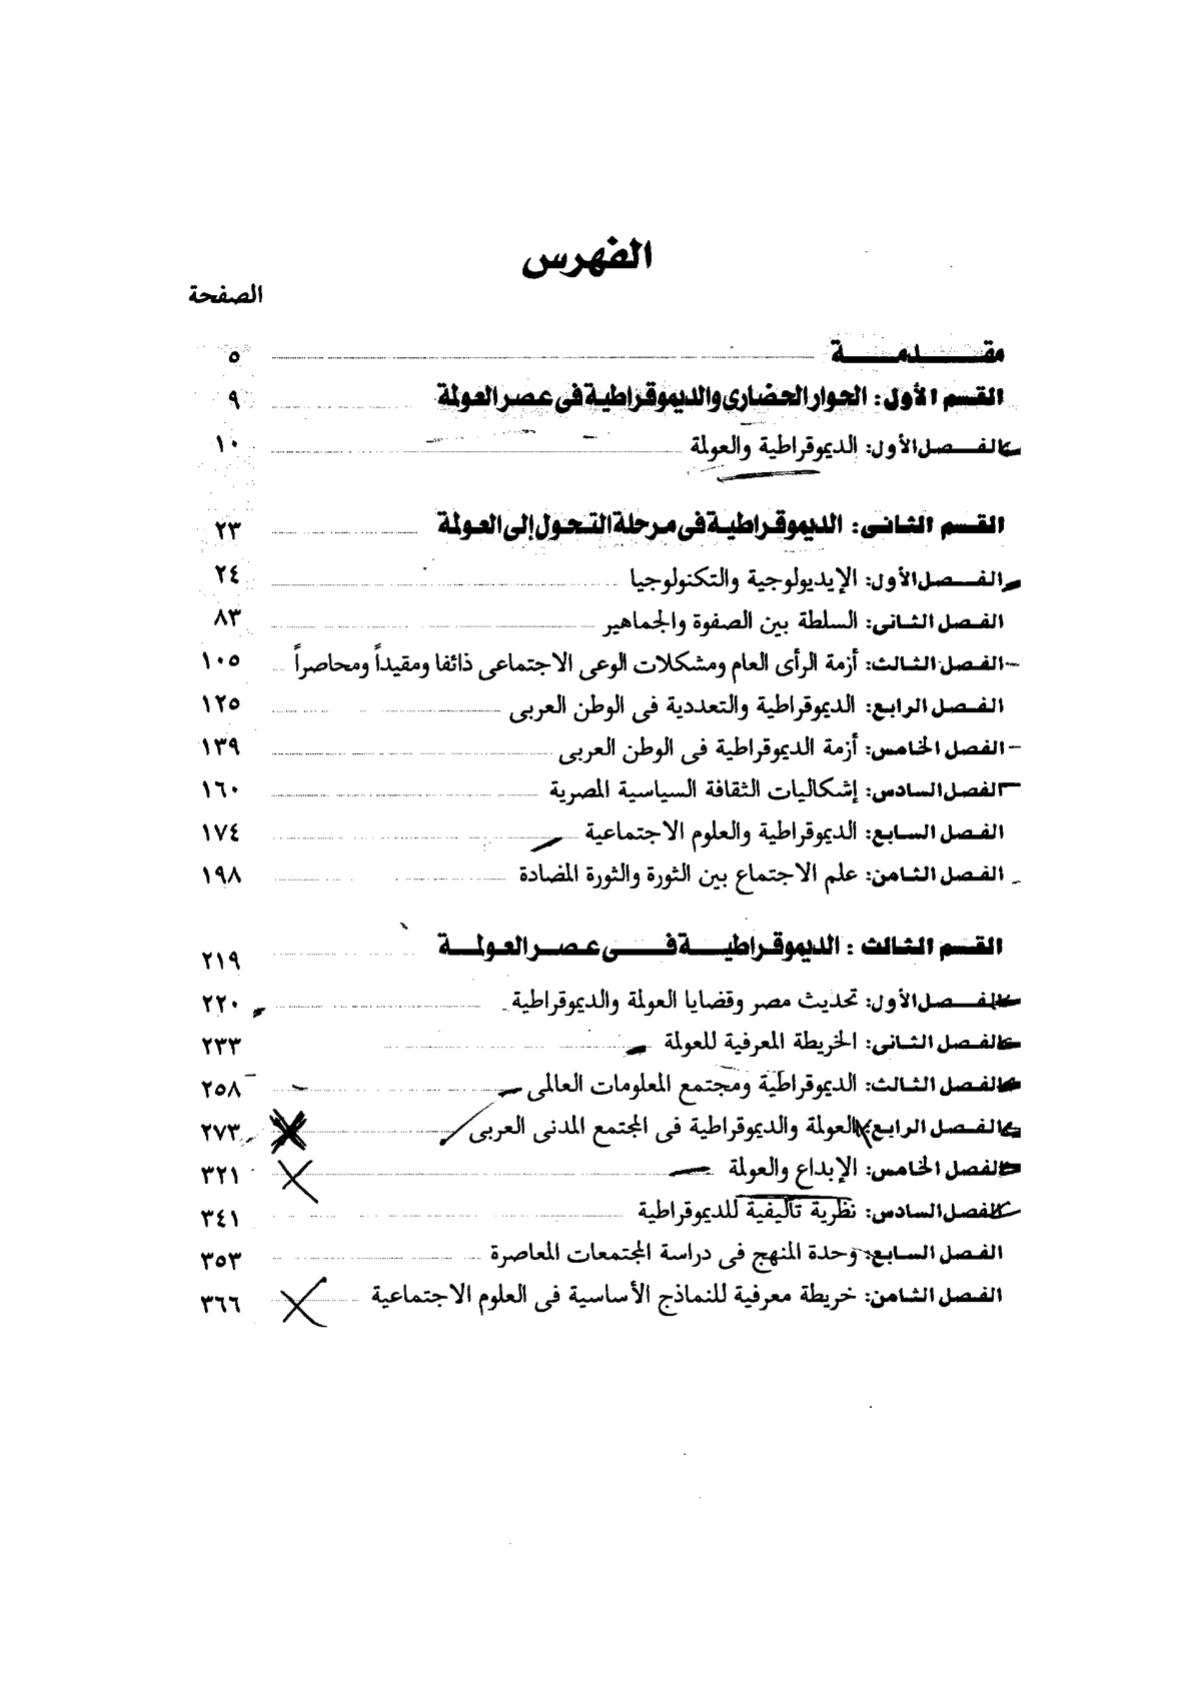 الفهرس
الصفحة
مقدمة ٥
القسم الأول: الحوار الحضارى والديموقراطية فى عصر العولمة ٩
الفصل الأول: الديموقراطية والعولمة ١٠
القسم الثانى: الديموقراطية فى مرحلة التحول إلى العولمة ٢٣
الفصل الأول: الإيديولوجية والتكنولوجيا ٢٤
الفصل الثانى: السلطة بين الصفوة والجماهير ٨٣
الفصل الثالث: أزمة الرأى العام ومشكلات الوعى الاجتماعى ذائفا ومقيداً ومحاصراً ١٠٥
الفصل الرابع: الديموقراطية والتعددية فى الوطن العربى ١٢٥
الفصل الخامس: أزمة الديموقراطية فى الوطن العربى ١٣٩
الفصل السادس: إشكاليات الثقافة السياسية المصرية ١٦٠
الفصل السابع: الديموقراطية والعلوم الاجتماعية ١٧٤
الفصل الثامن: علم الاجتماع بين الثورة والثورة المضادة ١٩٨
القسم الثالث : الديموقراطية فى عصر العولمة ٢١٩
الفصل الأول: تحديث مصر وقضايا العولمة والديموقراطية ٢٢٠
الفصل الثانى: الخريطة المعرفية للعولمة ٢٣٣
الفصل الثالث: الديموقراطية ومجتمع المعلومات العالمى ٢٥٨
الفصل الرابع: العولمة والديموقراطية فى المجتمع المدنى العربى ٢٧٣
الفصل الخامس: الإبداع والعولمة ٣٢١
الفصل السادس: نظرية تأليفية للديموقراطية ٣٤١
الفصل السابع: وحدة المنهج فى دراسة المجتمعات المعاصرة ٣٥٣
الفصل الثامن: خريطة معرفية للنماذج الأساسية فى العلوم الاجتماعية ٣٦٦